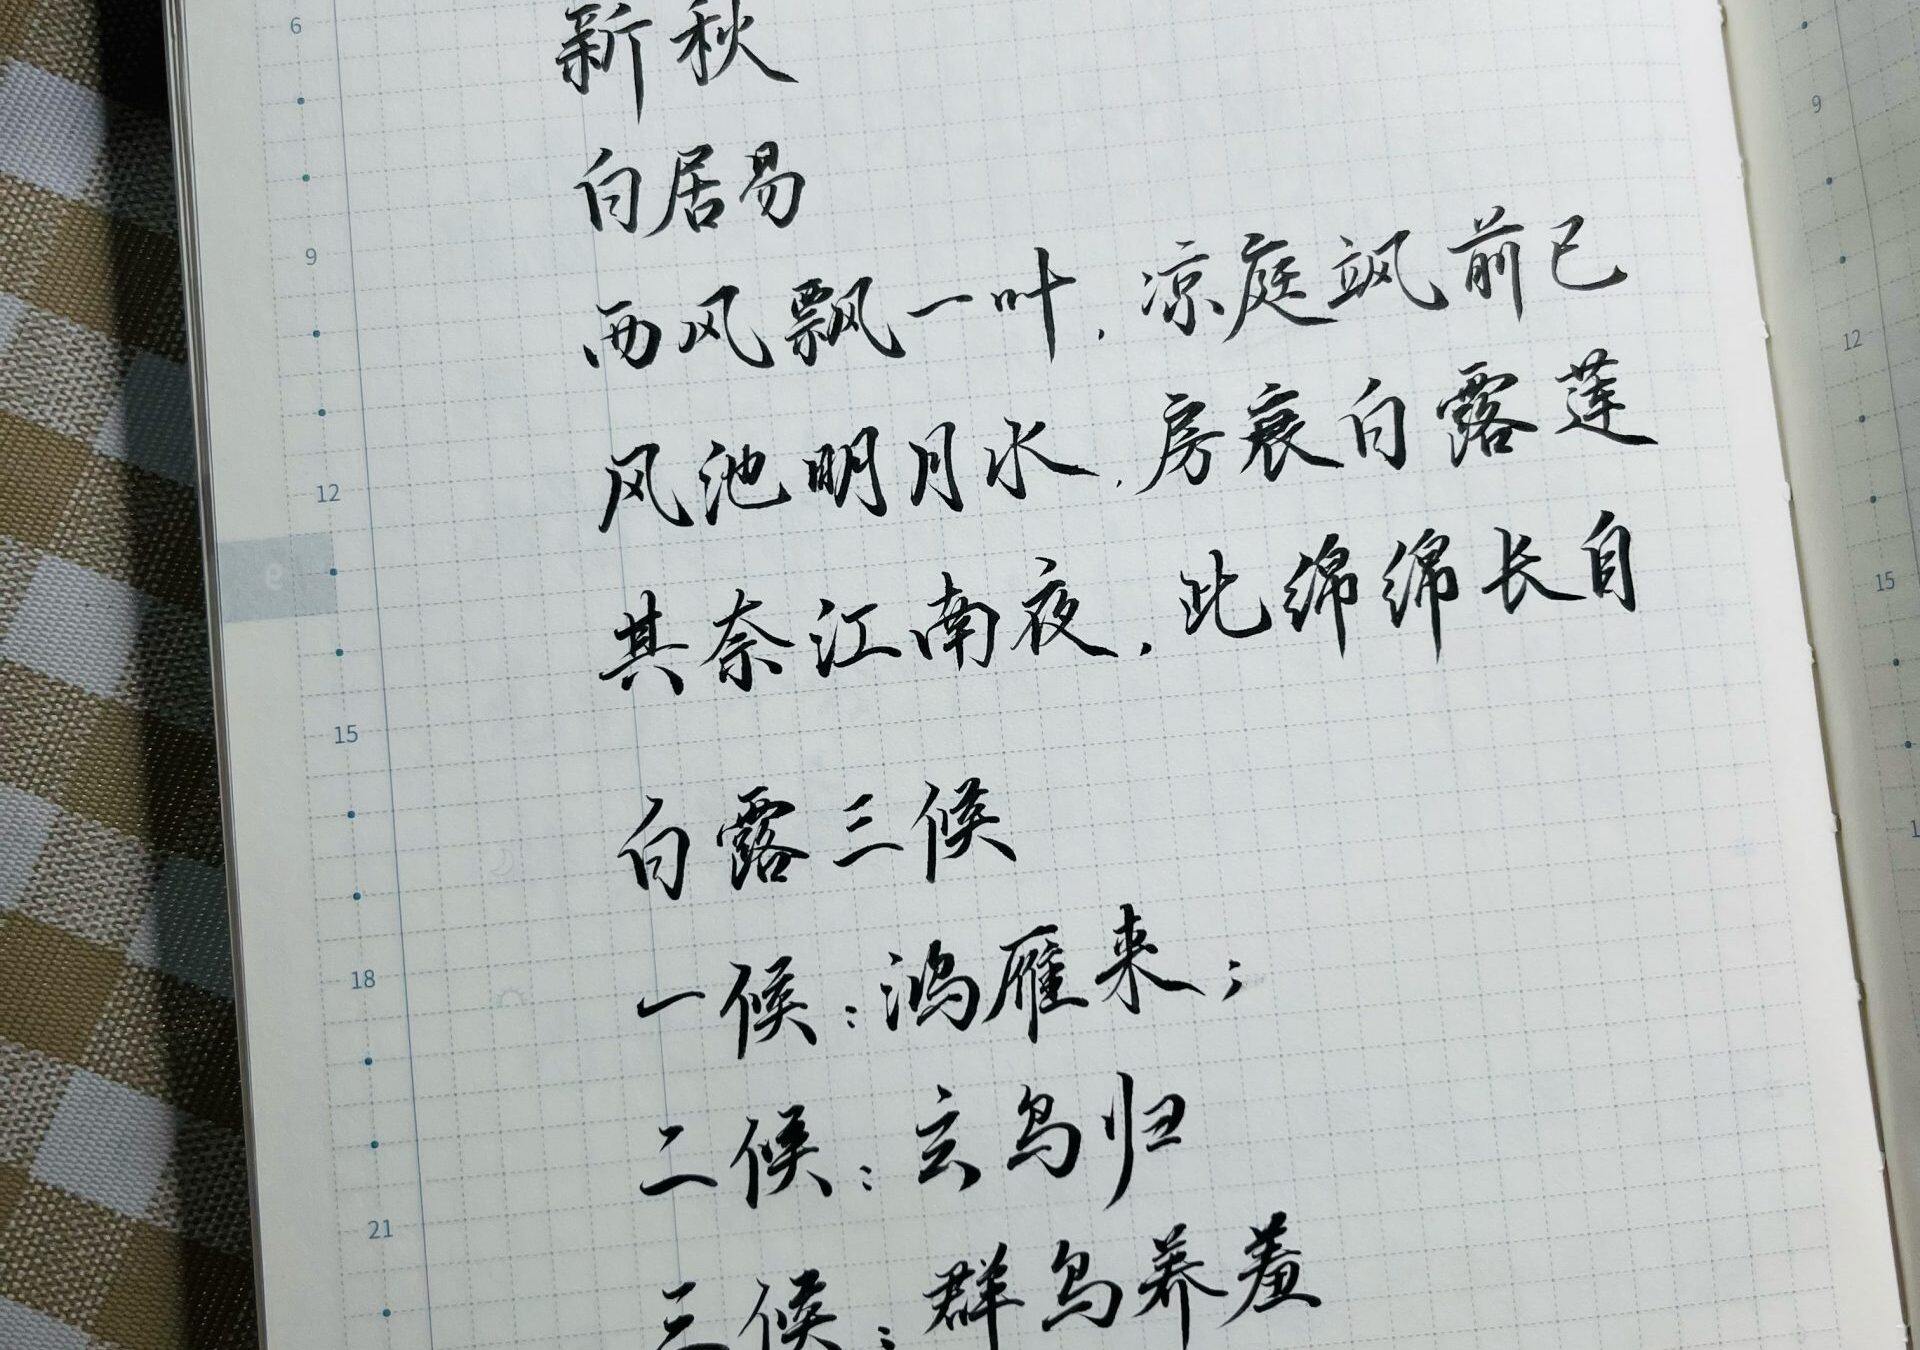 新秋
白居易
西风飘一叶，凉庭飒前已
风池明月水，房衰白露莲
其奈江南夜，此绵绵长自
白露三候
一候：鸿雁来；
二候：玄鸟归
三候：群鸟养羞
6
9
12
9
15
18
21
9
12
15